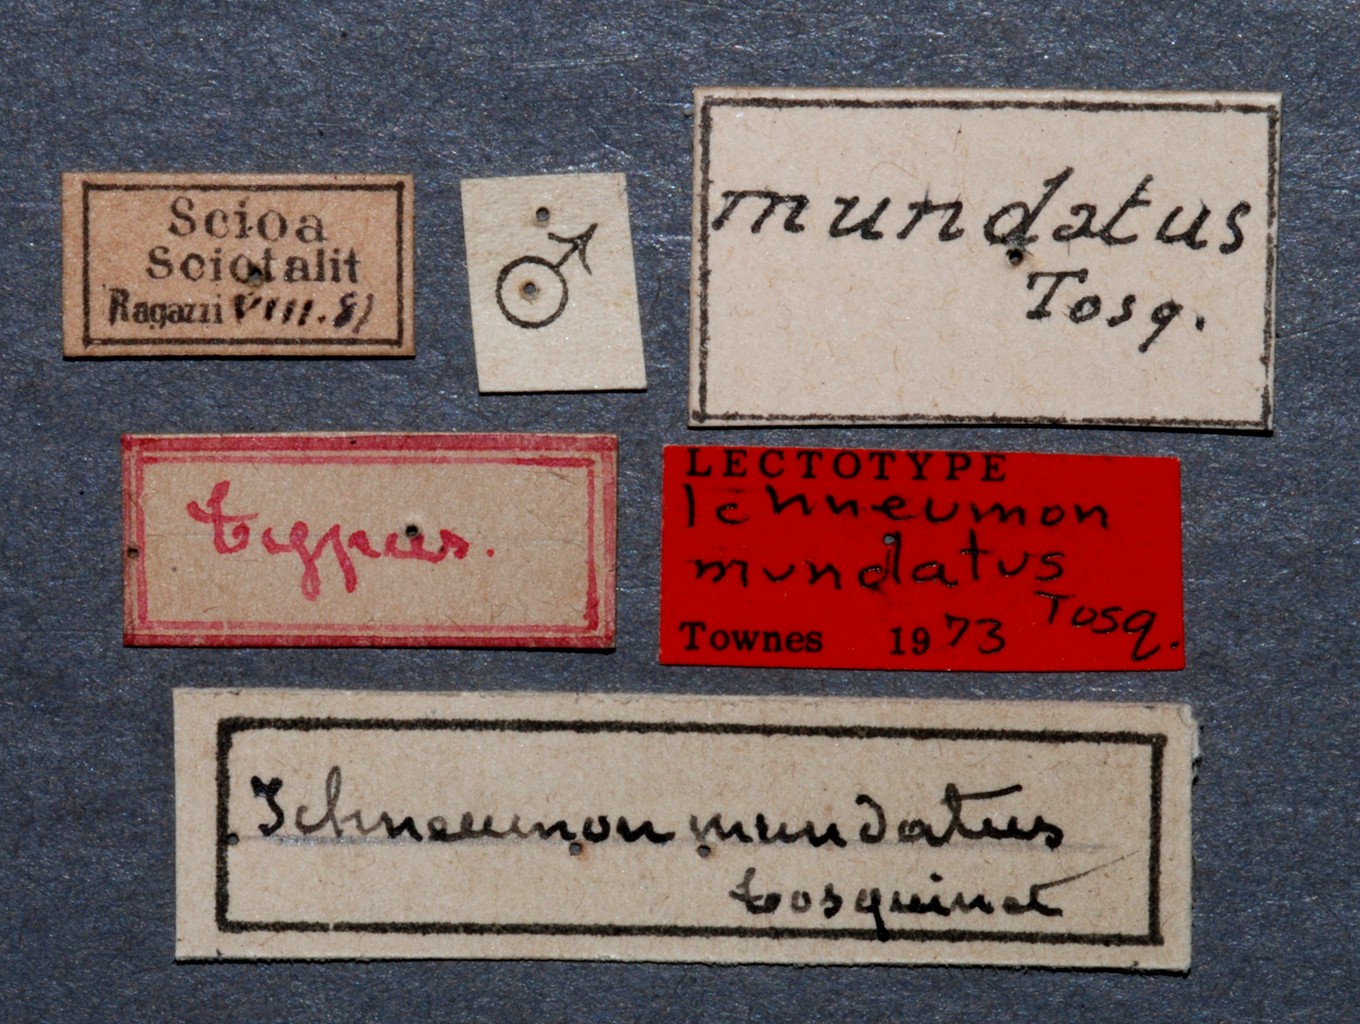 Scioa
Sciotalit
Ragazzi VIII.
♂
mundatus
Tosq.
typus.
LECTOTYPE
Ichneumon
mundatus
Tosq.
Townes 1973
Ichneumon mundatus
tosquinet